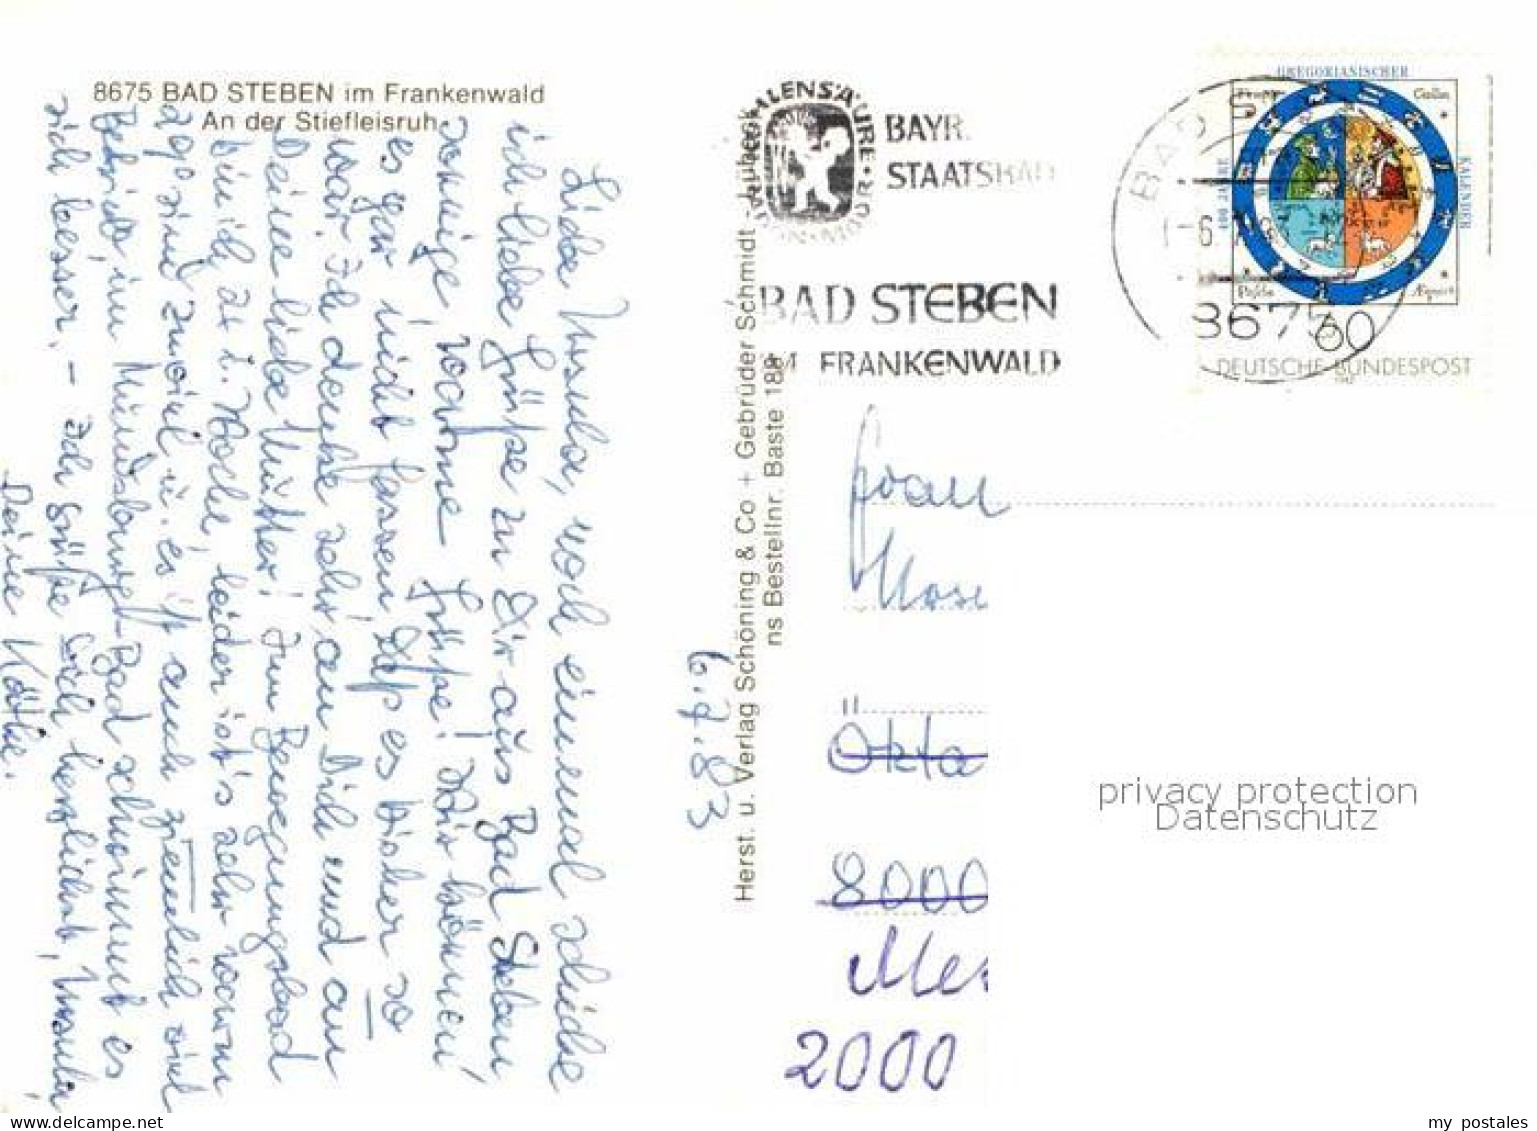 8675 BAD STEBEN im Frankenwald
An der Stiefleisruh
Liebe Ursula, noch einmal schicke
ich liebe Grüße zu Dir aus Bad Steben
sonnige, warme Grüße! Wir können
es gar nicht fassen daß es bisher so
war. Ich denke sehr an Dich und an
Deine liebe Mutter! Im Bewegungsbad
bin ich 2x i. Woche, leider ist's sehr warm
drin u. es ist auch ziemlich viel
Betrieb, im Münd Bad schwimmt es
sich besser. - Ich grüße Dich herzlichst, Ursula
Deine Käthe.
6.7.83
Herst. u. Verlag Schöning & Co + Gebrüder Schmidt
ns Bestellnr. Baste 188
KOHLENSÄURE · RADON · MOOR
BAYR.
STAATSBAD
BAD STEBEN
IM FRANKENWALD
BAD S
-6.
8675
GREGORIANISCHER
KALENDER
400 JAHRE
60
DEUTSCHE BUNDESPOST
1982
Frau
Okta
8000
2000
privacy protection
Datenschutz
my postales